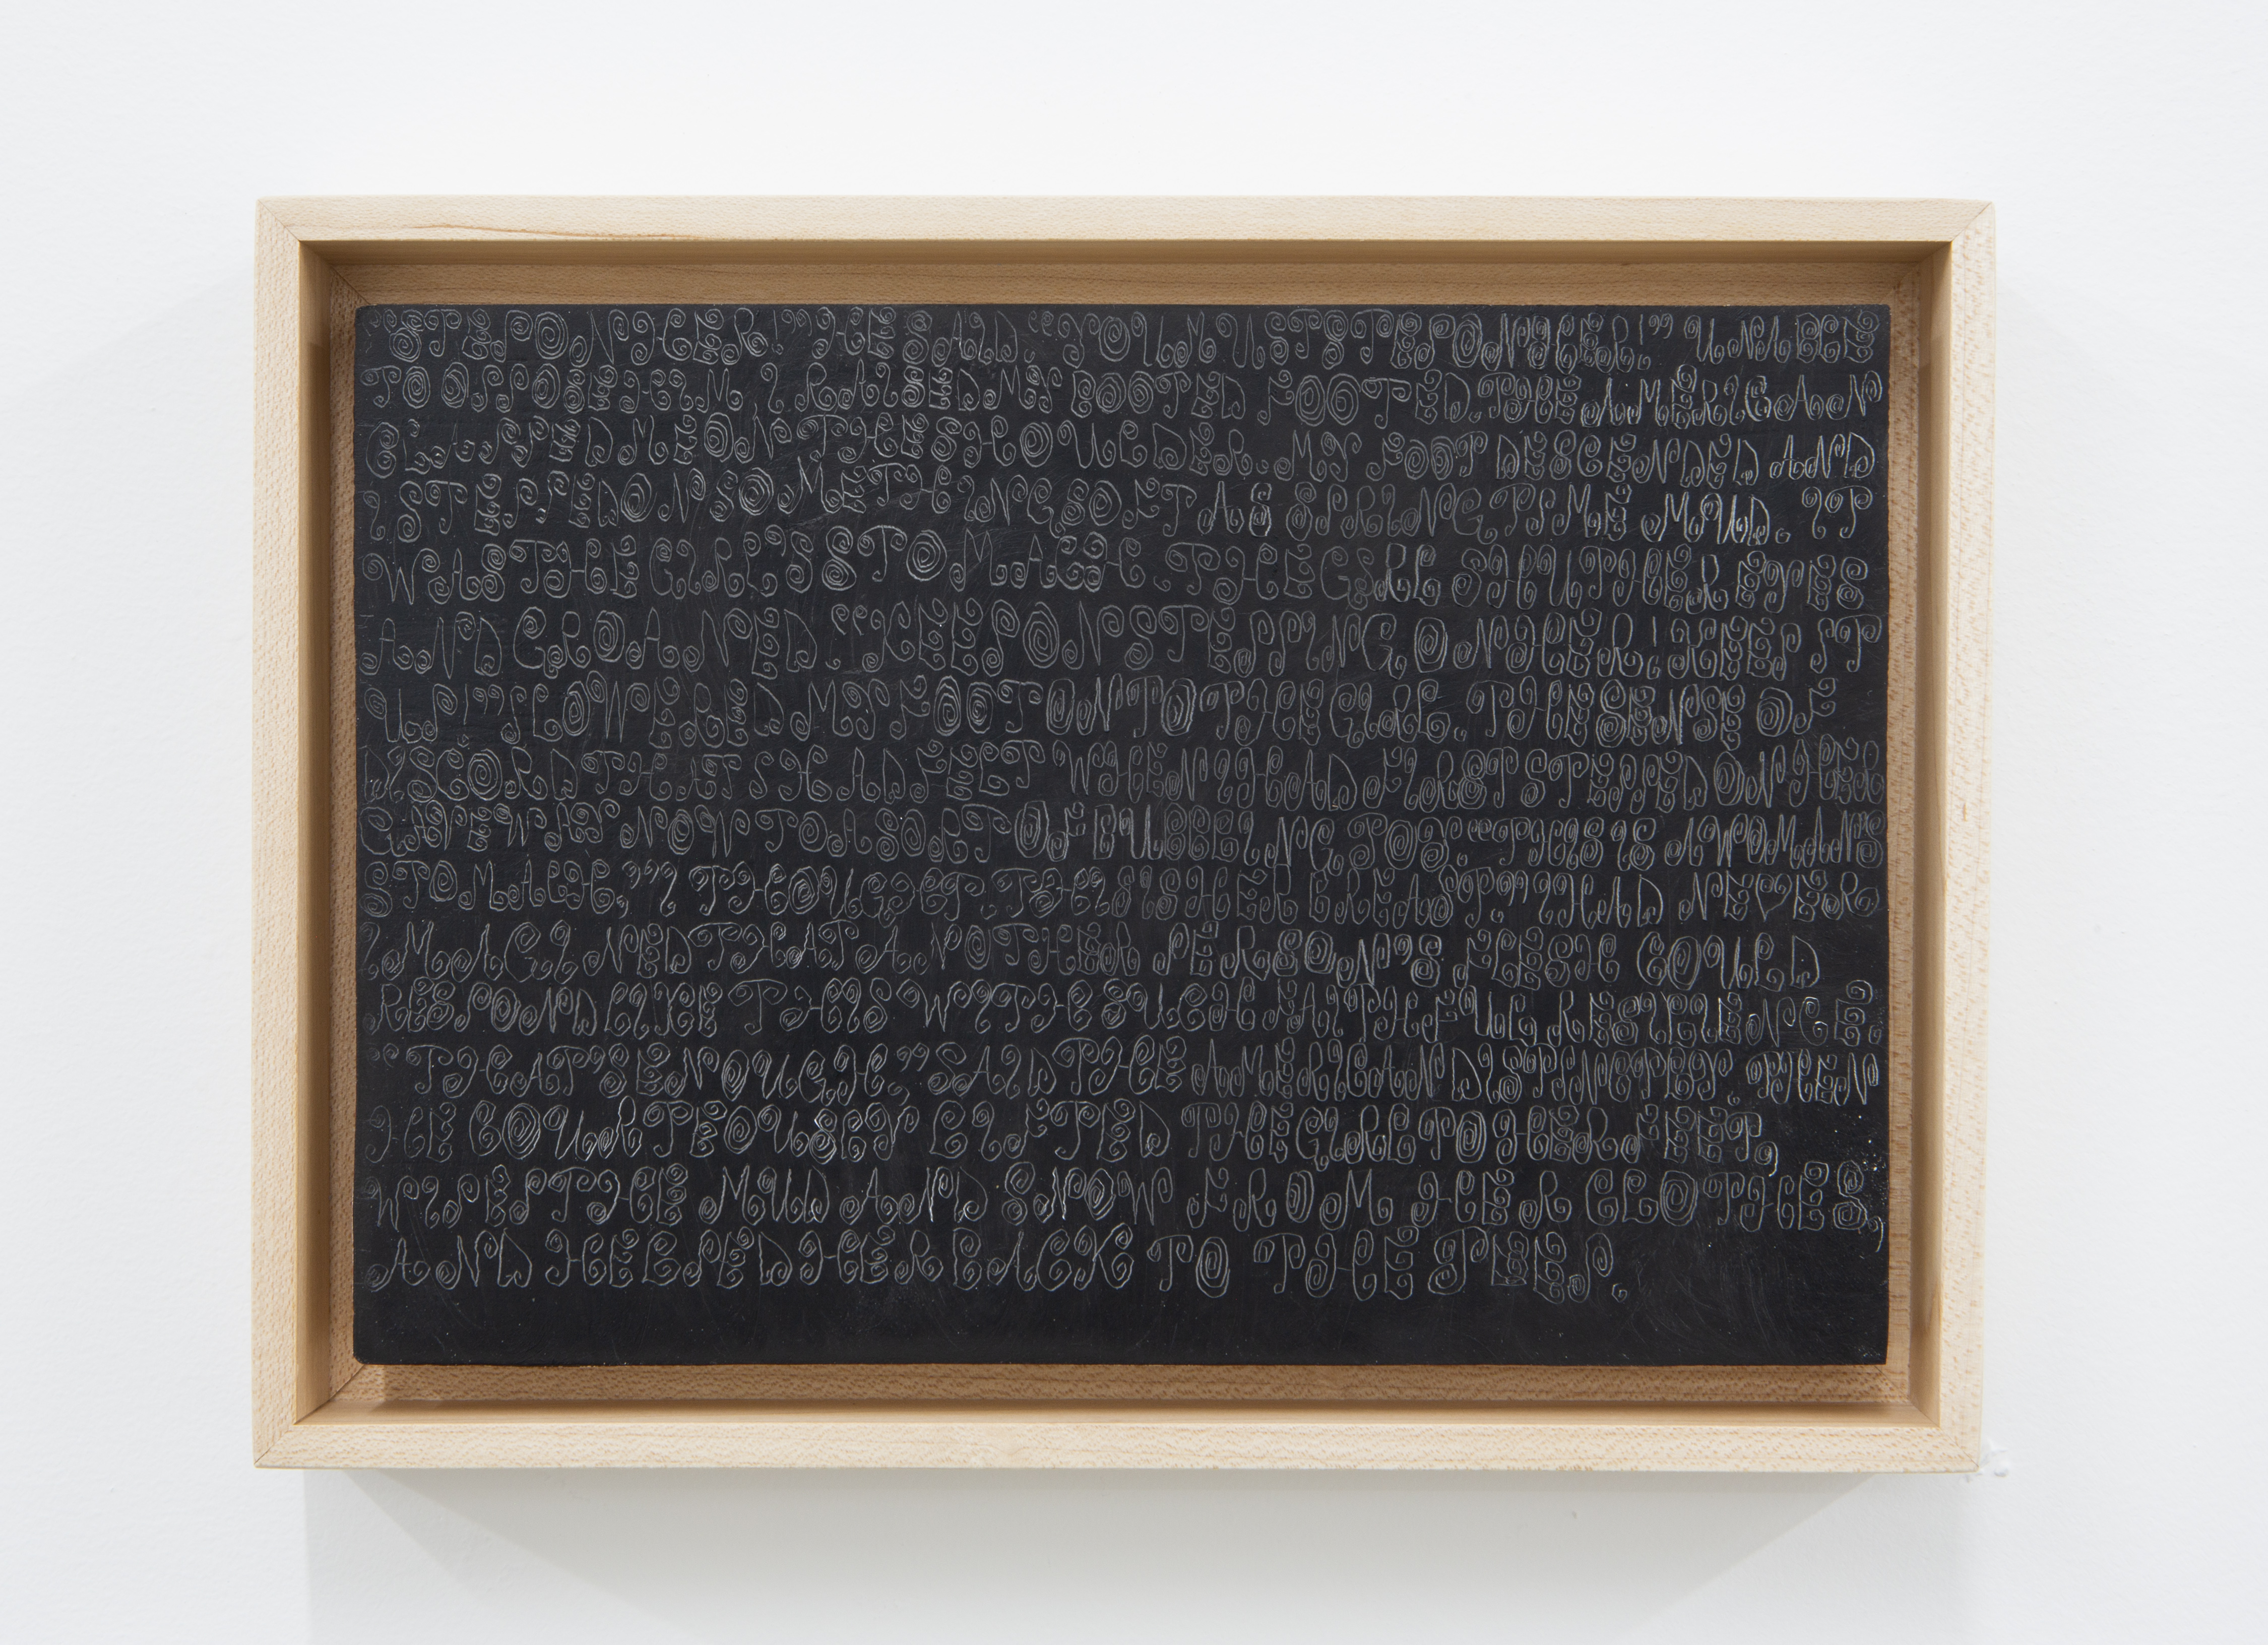 "STEP ON HER!" HE SAID. "YOU MUST STEP ON HER!" UNABLE
TO OPPOSE HIM I RAISED MY BOOTED FOOTED. THE AMERICAN
CLASPED ME ON THE SHOULDER. MY FOOT DESCENDED AND
I STEPPED ON SOMETHING SOFT AS SPRINGTIME MUD. IT
WAS THE GIRL'S STOMACH. THE GIRL SHUT HER EYES
AND GROANED "KEEP ON STEPPING ON HER! KEEP IT
UP!" I LOWERED MY FOOT ONTO THE GIRL. THE SENSE OF
DISCORD THAT I HAD FELT WHEN I HAD FIRST STEPPED ON HER
GAVE WAY NOW TO A SORT OF BUBBLING JOY. "THIS IS A WOMAN'S
STOMACH," I THOUGHT. "THIS IS HER BREAST." I HAD NEVER
IMAGINED THAT ANOTHER PERSON'S FLESH COULD
RESPOND LIKE THIS WITH SUCH FAITHFUL RESILIENCE.
"THAT'S ENOUGH," SAID THE AMERICAN DISTINCTLY. THEN
HE COURTEOUSLY LIFTED THE GIRL TO HER FEET,
WIPED THE MUD AND SNOW FROM HER CLOTHES,
AND HELPED HER BACK TO THE JEEP.